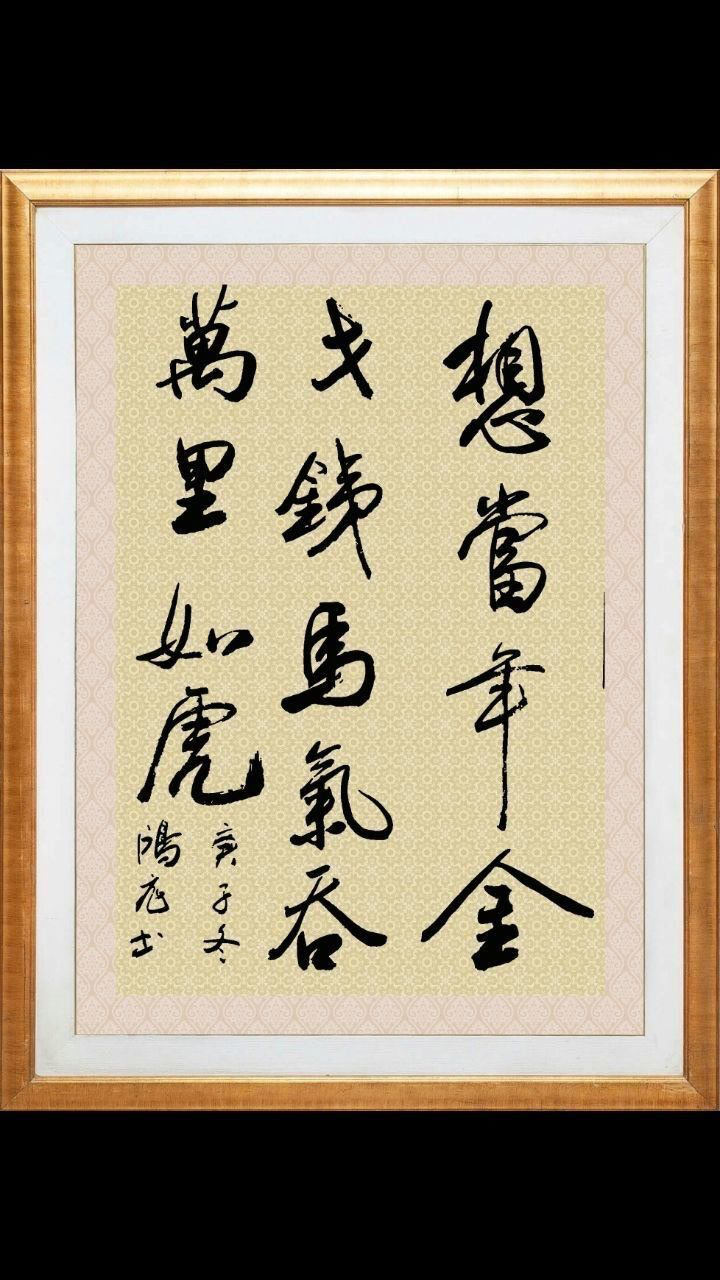 想當年金
戈鐵馬氣吞
萬里如虎
庚子冬
鴻彪书